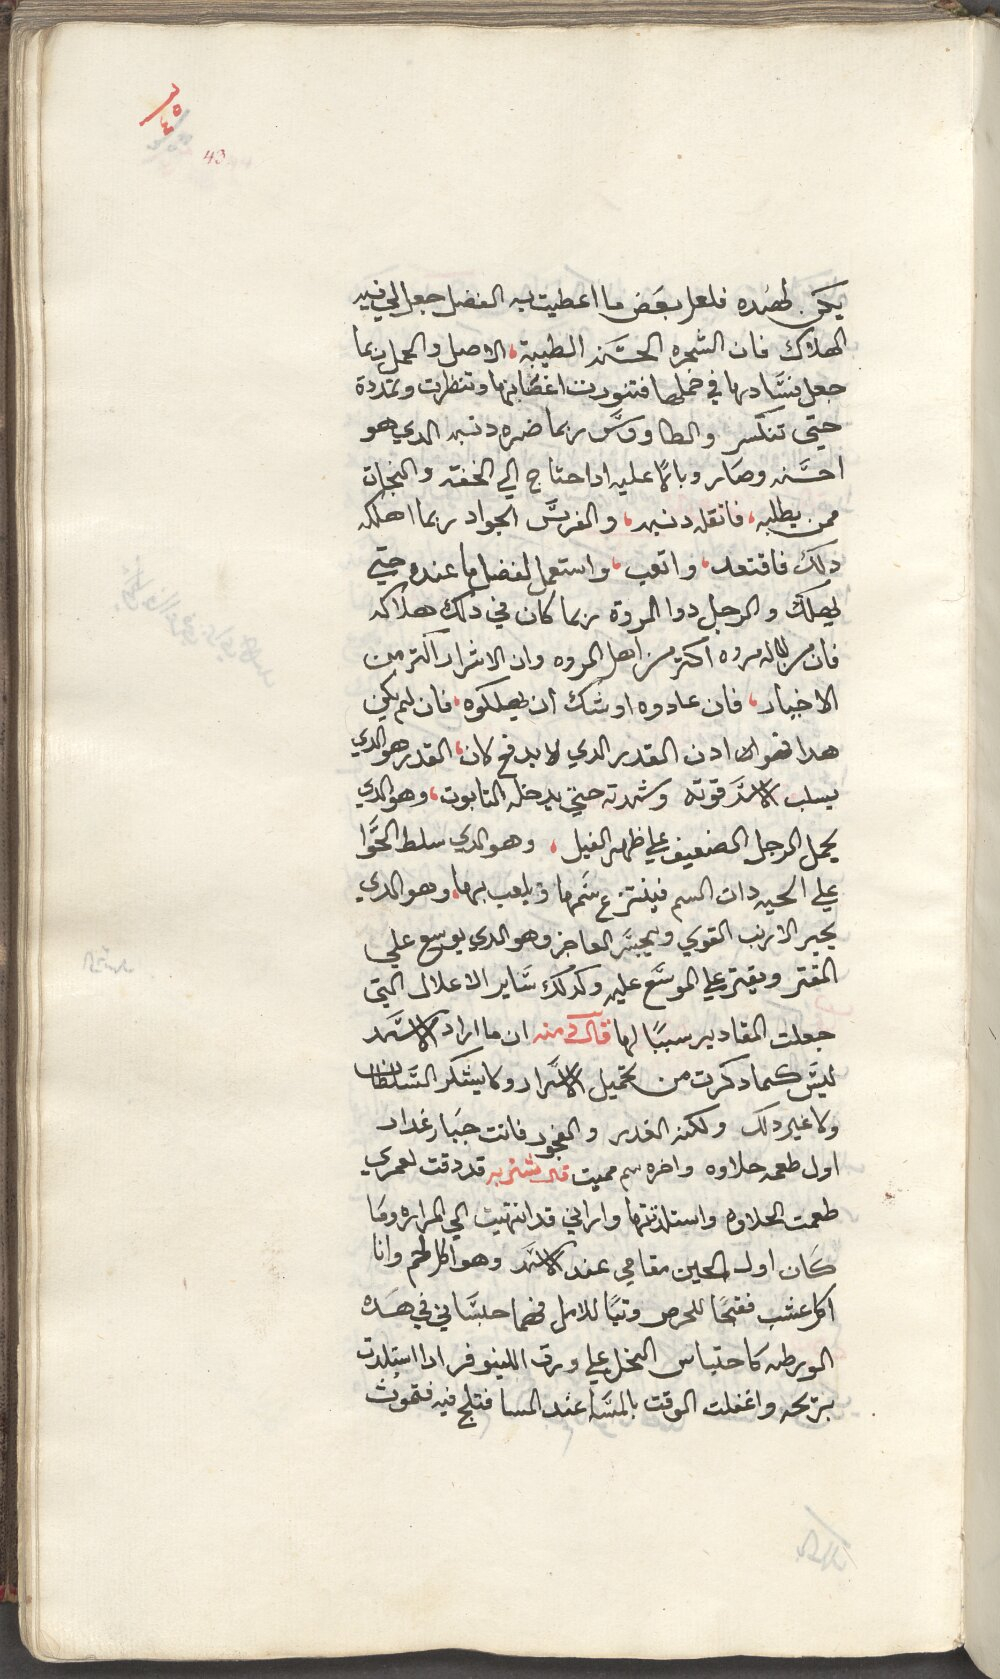 43
يكن لهده فلعل بعض ما اعطيت به الفضل جعل لي فيه
الهلاك فان الشجره الحسنه الطيبة، الاصل والحمل ربما
جعل فسادها في حملها فتنورت اغصانها وتنظرت وتمددة
حتي تنكسر والطاووس ربما ضره دنبه الدي هو
احسنه وصار وبالًا عليه ادا حتاج الي الخفه والنجاة
ممن يطلبه، فاتقله دنبه، والفرس الجواد ربما اهلكه
دلك فاقتعد، واتعب، واستعمل لفضل ما عنده حتي
يهلك والرجل دوا المروة ربما كان في دلك هلاكه
فان من لا له مروه اكثر من اهل المروه وان الاشرار اكتر من
الاخيار، فان عادوه اوشك ان يهلكوه، فان لم يكن
هدا فهو الا ادن القدر الدي لا يدفع كان، القدر هو الدي
يسلب الاسد قوته وشدته حتي يدخله التابوت، وهو الدي
يحمل الرجل الضعيف علي ظهر الفيل، وهو الدي سلط الحوا
علي الحيه دات السم فينتزع سمها ويلعب بها، وهو الدي
يحير الارنب القوي ويجسر العاجز وهو الدي يوسع علي
المقتر ويقتر علي الموسع عليه وكدلك ساير الاعلال التي
جعلت المقادير سببًا لها قال دمنه ان ما اراد الاسد
ليس كما دكرت من تحميل الاسرار ولا يشكر السلطان
ولا غير دلك ولكنه الغدر والفجور فانت جبار غدار
اول طعمه حلاوه واخره سم مميت قال شتربه قد دقت لعمري
طعمت الحلاوه واستلدتها واراني قد انتهيت الي المراره وما
كان اول الحين مقامي عند الاسد وهو اكل لحم وانا
اكل عشب فقبحًا للحرص وتبًا للامل فهما حبساني في هده
الورطه كاحتباس النحل علي ورق اللينوفر ادا استلدت
بريحه واغفلت الوقت بالمسا عند المسا فتلج فيه فتموت